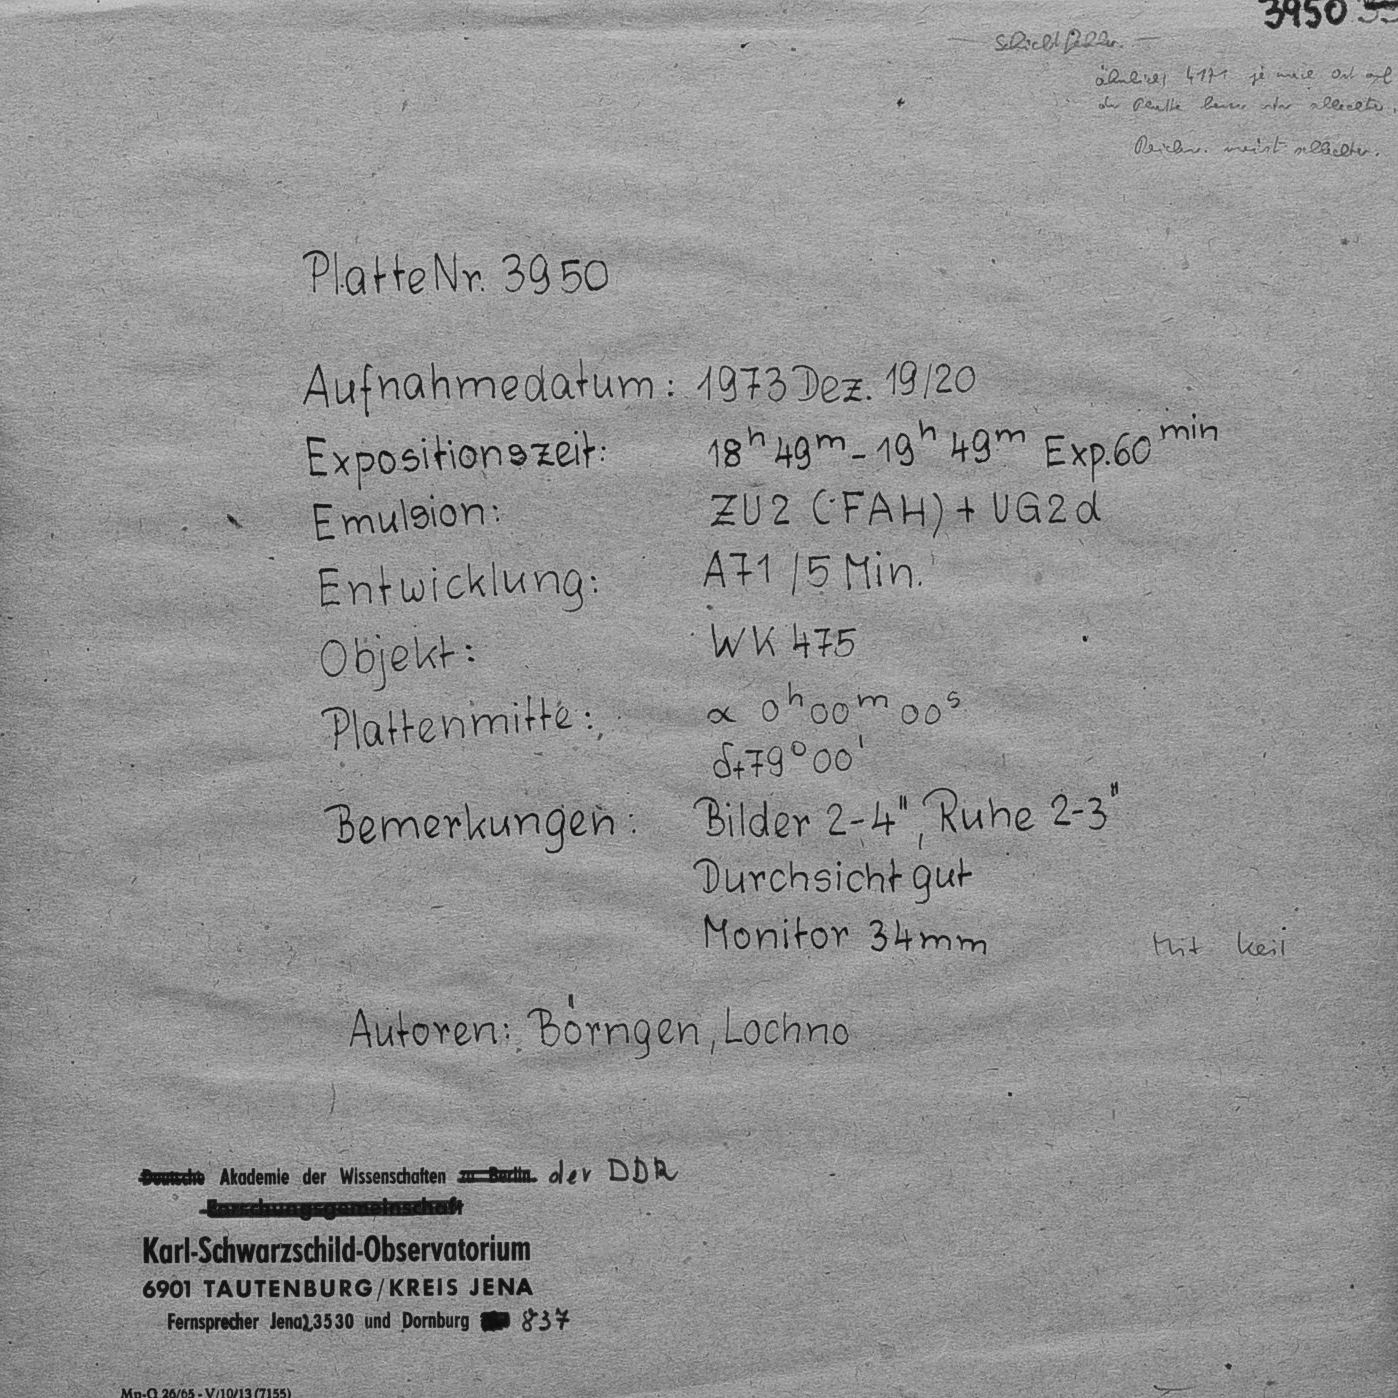 3950
Platte Nr. 3950
Aufnahmedatum: 1973 Dez. 19/20
Expositionszeit: 18h 49m - 19h 49m Exp. 60 min
Emulsion: ZU2 (FAH) + UG2d
Entwicklung: A71 / 5 Min.
Objekt: WK 475
Plattenmitte: α 0h 00m 00s
δ +79° 00'
Bemerkungen: Bilder 2-4", Ruhe 2-3"
Durchsicht gut
Monitor 34mm
Mit Keil
Autoren: Börngen, Lochno
Deutsche Akademie der Wissenschaften zu Berlin der DDR
Forschungsgemeinschaft
Karl-Schwarzschild-Observatorium
6901 TAUTENBURG/KREIS JENA
Fernsprecher Jena 23530 und Dornburg 837
Mp-O 26/65 - V/10/13 (7155)